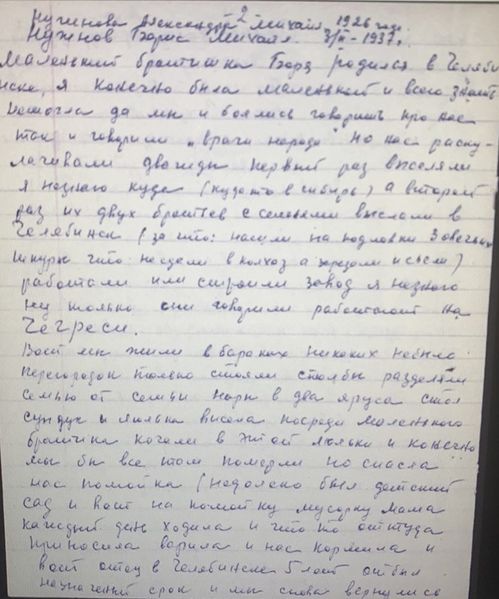 Нужнова Александра Михайл. 1926 года
2
Нужнов Борис Михайл. 3/II-1937г.
Маленький братишка Боря родился в Челяби
нске, я конечно была маленькой и всего знать
немогла да мы и боялись говорить про нас
так и говорили „враги народа" но нас раску-
лачивали дважды первый раз выселяли
я незнаю куда (кудато в сибирь) а второй
раз их двух братьев с семьями выслали в
Челябинск (за что: нашли на подловки 3 овечьих
шкуры что несдали в колхоз а зарезали и съели)
работали или строили завод я незнаю
ну только они говорили работают на
Чегреси.
Вот мы жили в бараках никаких небыло
перегородок только стояли столбы разделяли
семью от семьи нары в два яруса стол
сундук и люлька висела посреди маленького
братичка качали в этой люльки и конечно
мы бы все там померли но спасла
нас помойка (недалеко был детский
сад и вот на помойку мусорку мама
каждый день ходила и что то оттуда
приносила варила и нас кормила и
вот отец в Челябинске 5 лет отбыл
назначеный срок и мы снова вернулись